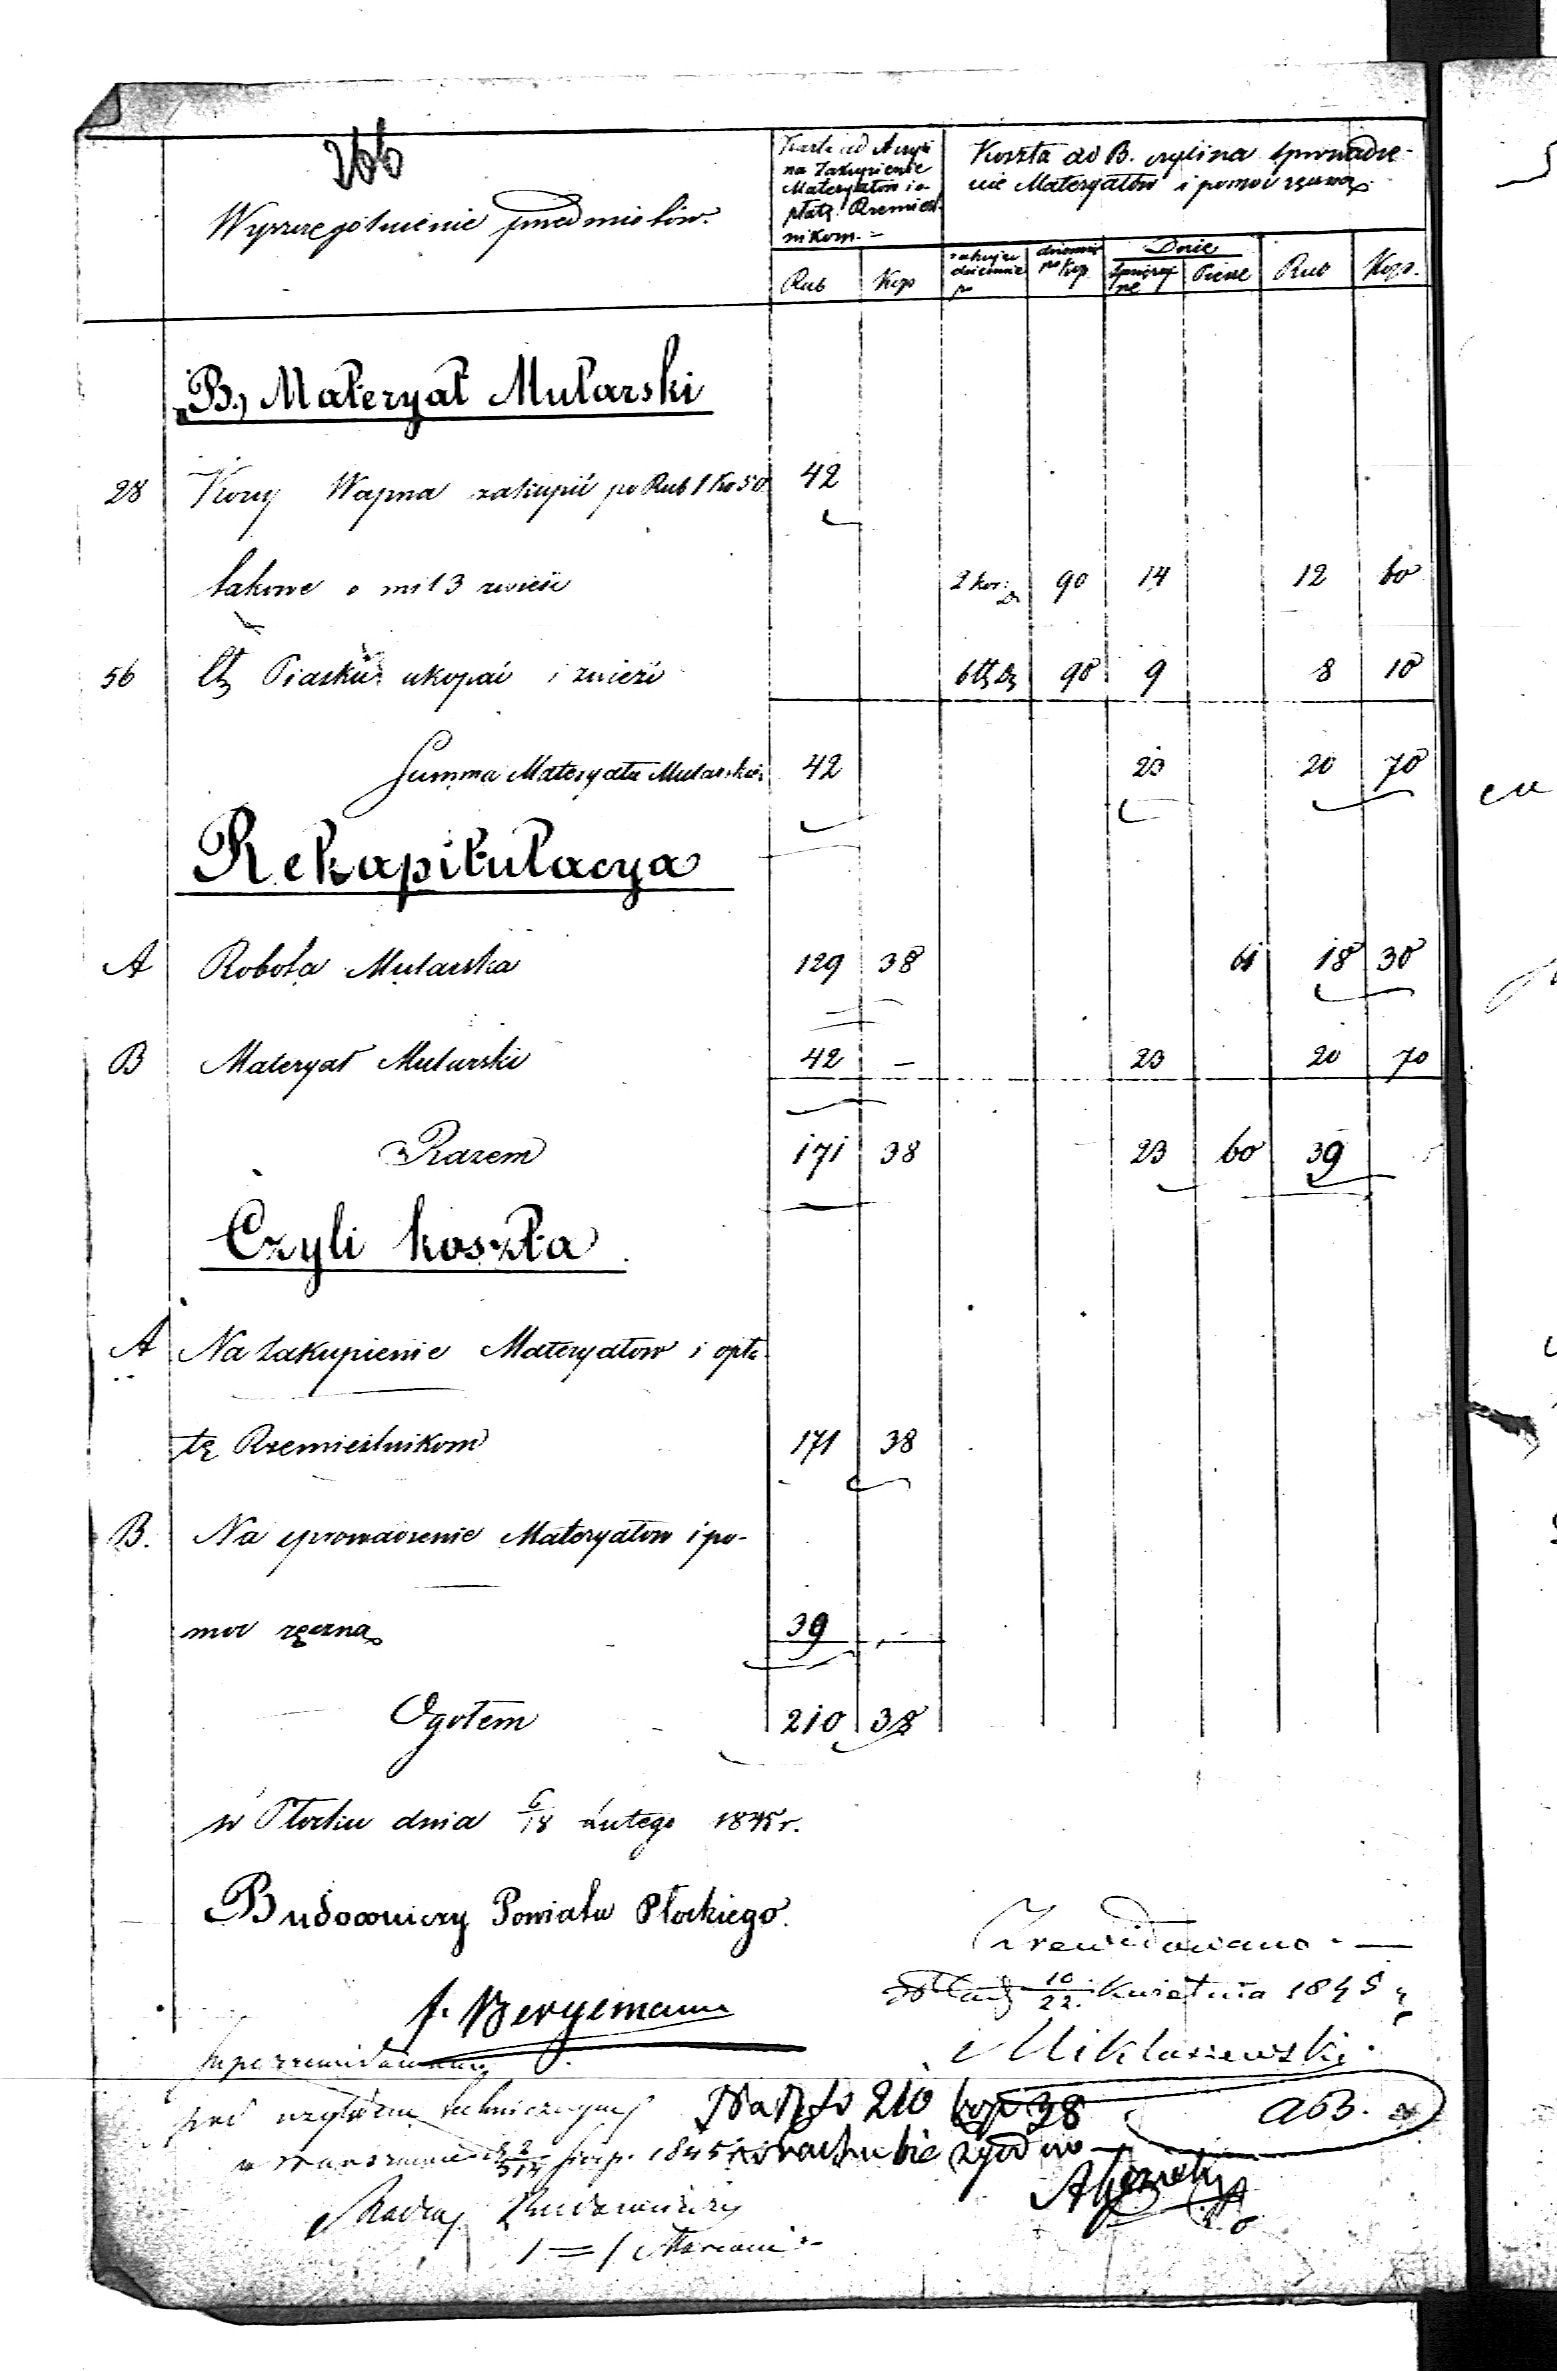 266
Wyszczegolnienie przedmiotów.
Koszta ad A czyli
na Zakupienie
Materyałow i o-
płatę Rzemieśl-
nikom.
Koszta ad B. czyli na sprowadze-
nie Materyałów i pomoc ręczną
Rub Kop dziennie po Kop Dnie sprzężaj-
ne Piesze Rub Kop.
B., Materyał Mularski
28 Korcy Wapna zakupić po Rub 1 Ko 50 42
takowe o mil 3 zwieść 2 kor: 90 14 12 60
56 Piasku ukopać i zwieźć 90 9 8 10
Summa Materyału Mularskie: 42 23 20 70
Rekapitulacya
A Robota Mularska 129 38 61 18 30
B Materyał Mularski 42 – 23 20 70
Razem 171 38 23 60 39
Czyli koszta
A Na Zakupienie Materyałow i opła
tę Rzemieślnikom 171 38
B. Na sprowadzenie Materyałow i po-
moc ręczną 39 . –
Ogołem 210 38
w Płocku dnia 6/18 Lutego 1845 r.
Budowniczy Powiatu Płockiego.
f. Bergemann
Zrewidowano. —
10/22. Kwietnia 1845
Miklaszewski
Superrewidowany
pod względem technicznym
1845
Radca Budowniczy
Na Rs 210 kop 38
w rachubie zgodno